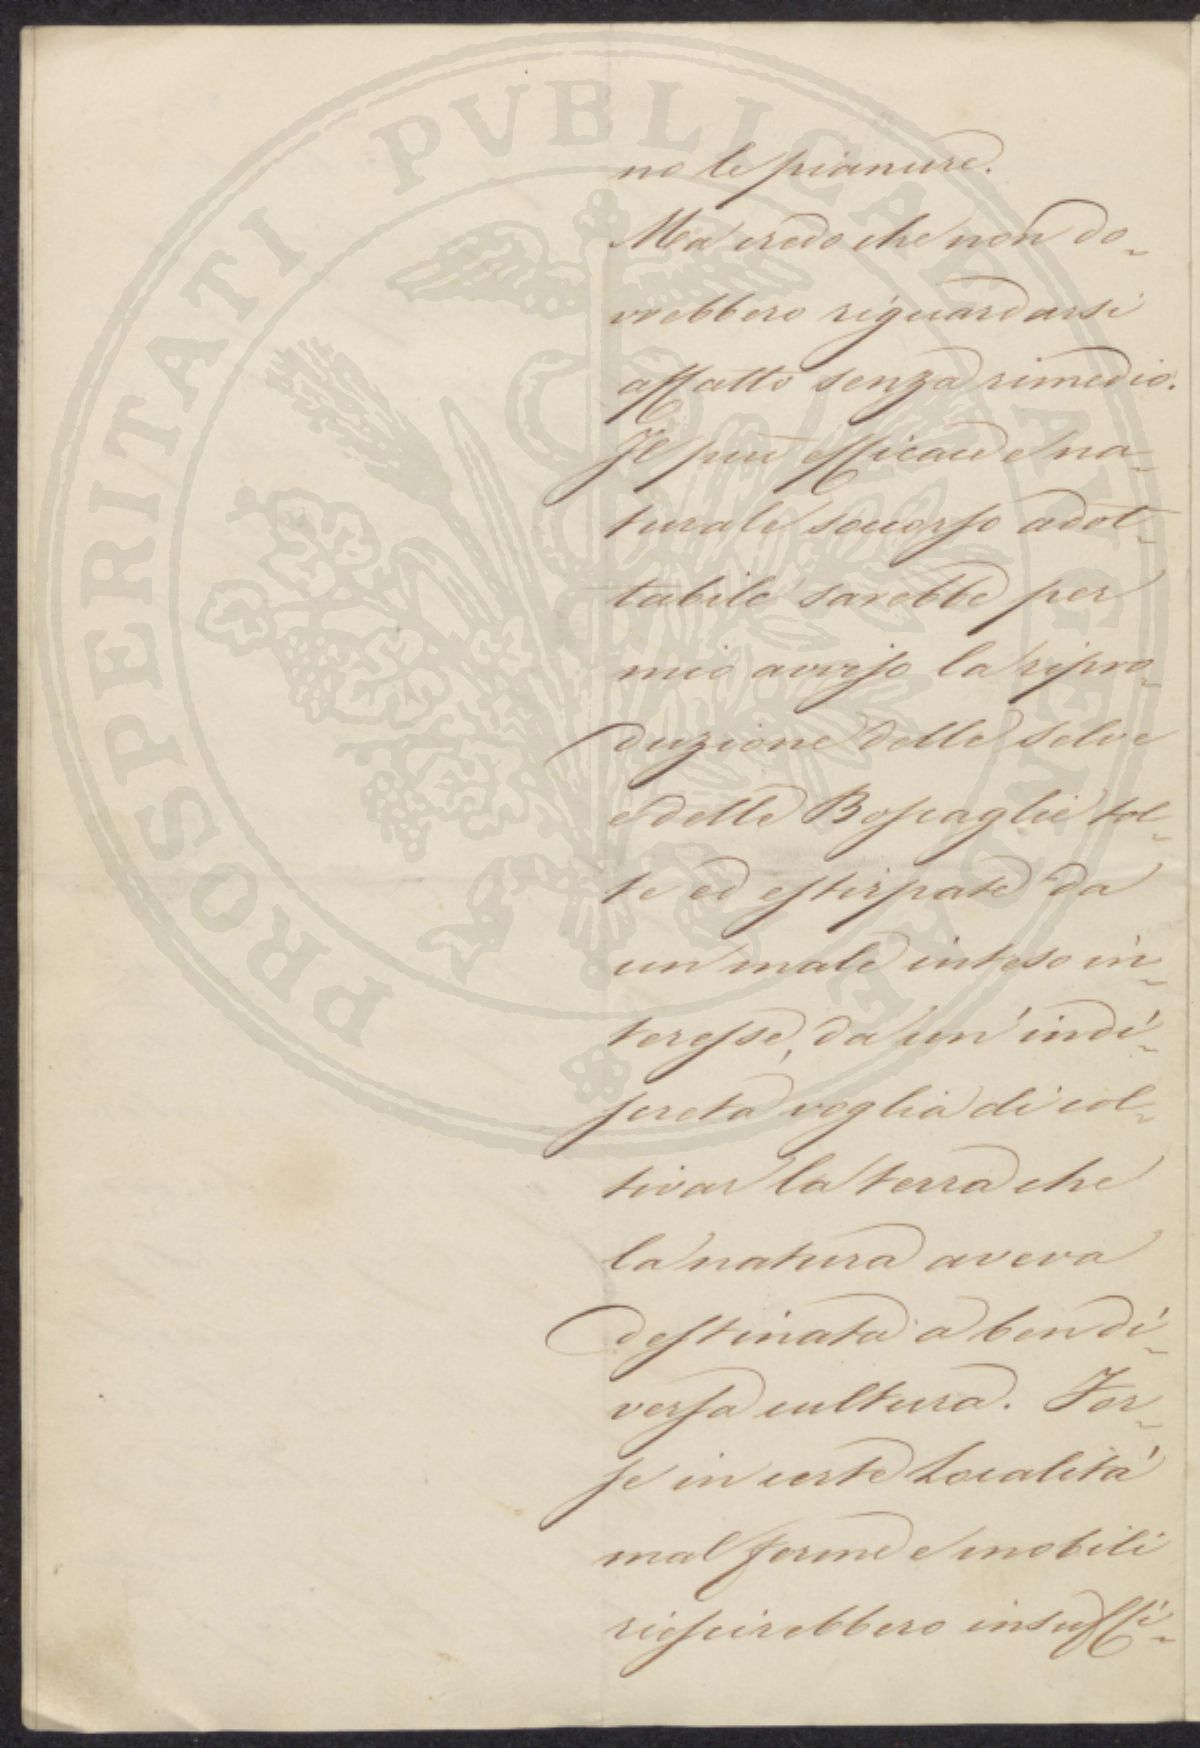 PROSPERITATI PUBLICAE AUGENDAE
no le pianure.
Ma credo che non do-
vrebbero riguardarsi
affatto senza rimedio.
Il più efficace e na-
turale soccorso adot-
tabile sarebbe per
mio avviso la ripro-
duzione delle selve
e delle Boscaglie tol-
te ed estirpate da
un male inteso in-
teresse, da un' indi-
screta voglia di col-
tivar la terra che
la natura aveva
destinata a ben di-
versa cultura. For-
se in certe Località
mal ferme e mobili
riescirebbero insuffi-